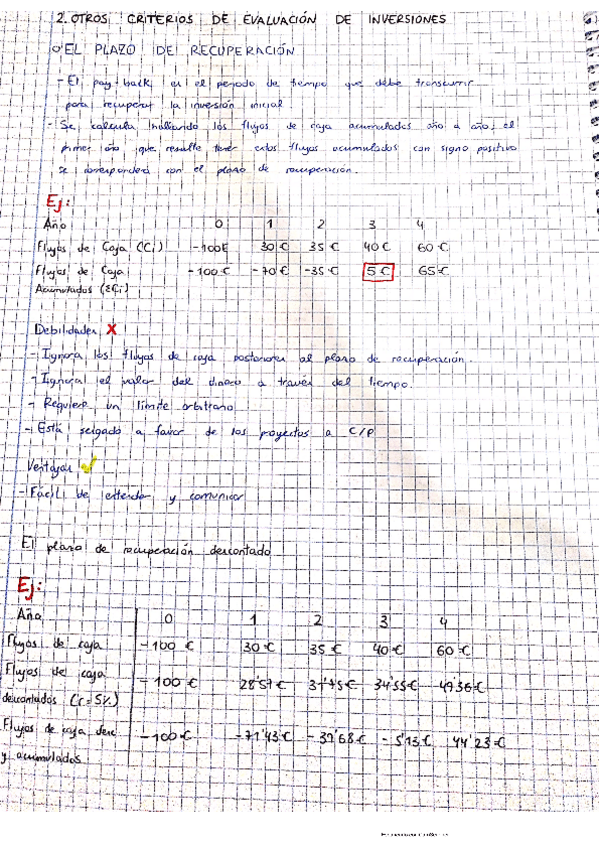 2. OTROS CRITERIOS DE EVALUACIÓN DE INVERSIONES
EL PLAZO DE RECUPERACIÓN
- El pay-back es el periodo de tiempo que debe transcurrir
para recuperar la inversión inicial
- Se calcula hallando los flujos de caja acumulados año a año, el
primer año que resulte tener estos flujos acumulados con signo positivo
se corresponderá con el plazo de recuperación.
Ej:
Año 0 1 2 3 4
Flujos de Caja (Ci) -100€ 30€ 35€ 40€ 60€
Flujos de Caja -100€ -70€ -35€ 5€ 65€
Acumulados (ΣCi)
Debilidades X
- Ignora los flujos de caja posteriores al plazo de recuperación.
- Ignora el valor del dinero a través del tiempo.
- Requiere un límite arbitrario
- Está sesgado a favor de los proyectos a C/P
Ventajas ✓
- Fácil de entender y comunicar
El plazo de recuperación descontado
Ej:
Año 0 1 2 3 4
Flujos de caja -100 € 30€ 35€ 40€ 60€
Flujos de caja -100 € 28'57€ 31'75€ 34'55€ 49'36€
descontados (r=5%)
Flujos de caja desc -100€ -71'43€ -39'68€ -5'13€ 44'23€
y acumulados